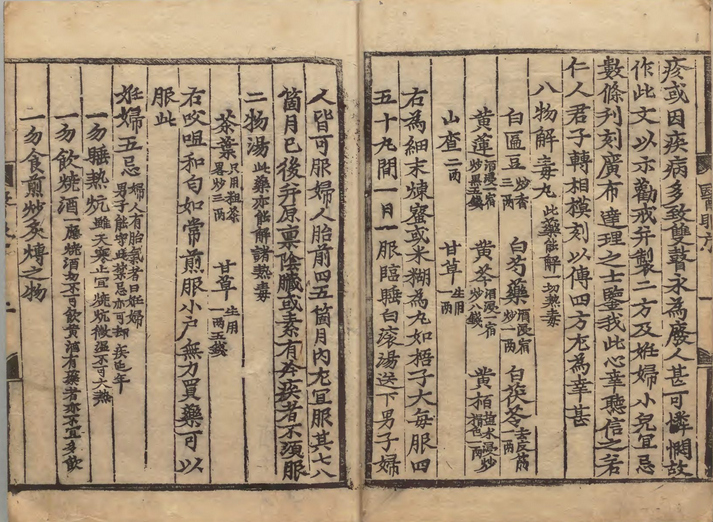 疹或因疾病多致雙瞽永為廢人甚可憐憫故
作此文以示勸戒幷製二方及姙婦小兒宜忌
數條刋刻廣布達理之士鑒我此心幸聽信之若
仁人君子轉相模刻以傳四方尤為幸甚
八物解毒丸 此藥能解一切熱毒
白匾豆 炒香三兩 白芍藥 酒浸一宿炒一兩 白茯苓 去皮筋一兩
黃蓮 酒浸一宿炒黑五錢 黃芩 酒浸一宿炒八錢 黃栢 塩水浸炒褐色一兩
山查 二兩 甘草 生用一兩
右為細末煉蜜或米糊為丸如梧子大每服四
五十丸間一日一服臨睡白滾湯送下男子婦
人皆可服婦人胎前四五箇月內尤宜服其七八
箇月已後幷原稟陰臟或素有冷疾者不須服
二物湯 此藥亦能解諸熱毒
茶葉 只用粗茶畧炒三兩 甘草 生用一兩五錢
右㕮咀和勻如常煎服小戶無力買藥可以
服此
姙婦五忌 婦人有胎氣者曰姙婦男子能守此禁忌亦可却疾延年
一勿睡熱炕 雖天寒止宜燒炕微溫不可大熱
一勿飲燒酒 一應燒酒勿不可飲黃酒有藥者亦不宜多飲
一勿食煎炒炙煿之物